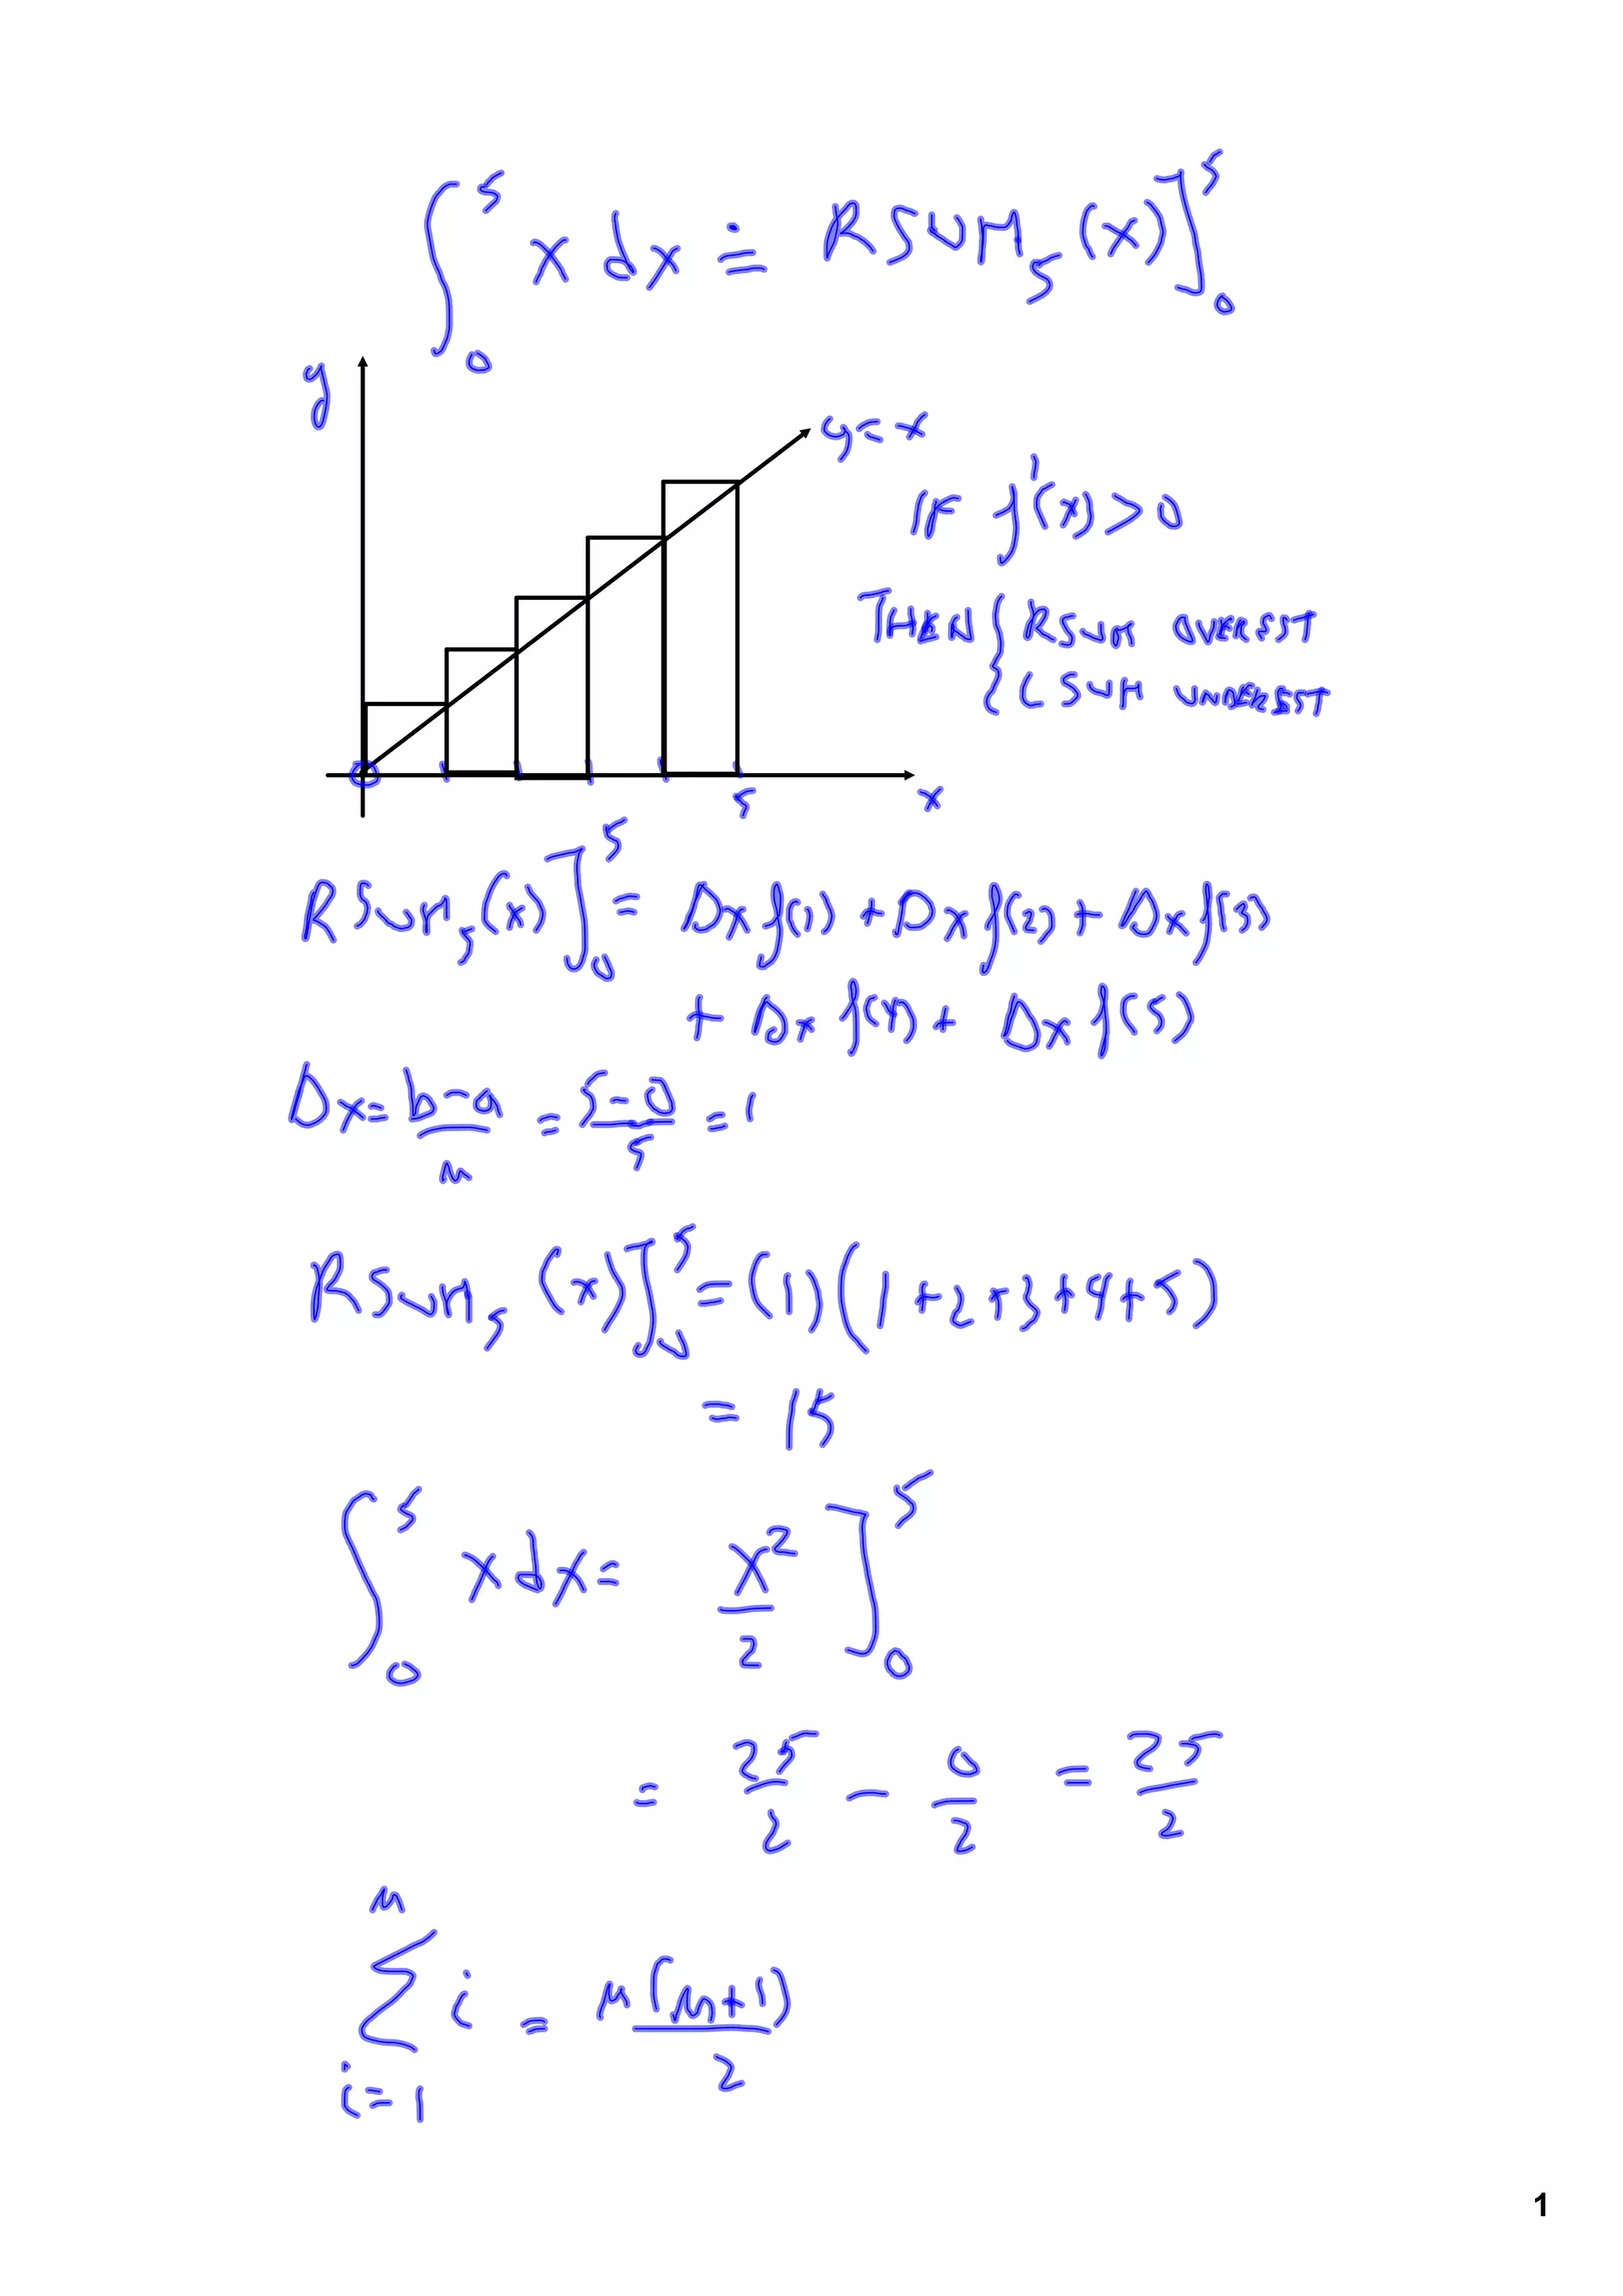 ∫₀⁵ x dx ≐ RSUM₅(x)]₀⁵
y
y = x
IF f'(x) > 0
THEN { RSUM OVEREST
{ LSUM UNDEREST
0 5 x
RSUM₅(x)]₀⁵ = Δx f(1) + Δx f(2) + Δx f(3)
+ Δx f(4) + Δx f(5)
Δx = (b-a)/n = (5-0)/5 = 1
RSUM₅(x)]₀⁵ = (1)(1+2+3+4+5)
= 15
∫₀⁵ x dx = x²/2]₀⁵
= 25/2 - 0/2 = 25/2
∑ᵢ₌₁ⁿ i = n(n+1)/2
1